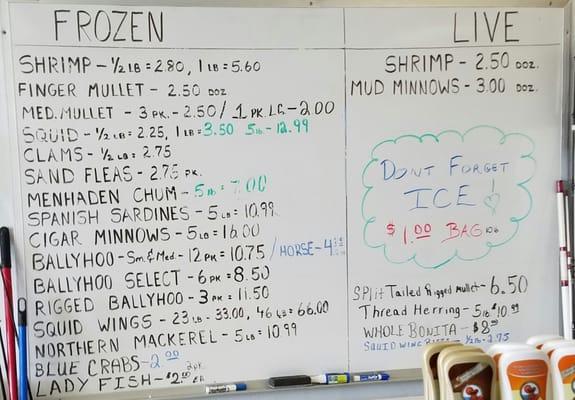 FROZEN
SHRIMP - 1/2 LB = 2.80, 1 LB = 5.60
FINGER MULLET - 2.50 DOZ
MED. MULLET - 3 PK. - 2.50 / 1 PK. LG. - 2.00
SQUID - 1/2 LB = 2.25, 1 LB = 3.50 5 lb - 12.99
CLAMS - 1/2 LB = 2.75
SAND FLEAS - 2.75 PK.
MENHADEN CHUM - 5 lb = 7.00
SPANISH SARDINES - 5 LB = 10.99
CIGAR MINNOWS - 5 LB = 16.00
BALLYHOO - Sm. & Med. - 12 PK = 10.75 / HORSE - 4
BALLYHOO SELECT - 6 PK = 8.50
RIGGED BALLYHOO - 3 PK = 11.50
SQUID WINGS - 23 LB - 33.00, 46 LB = 66.00
NORTHERN MACKEREL - 5 LB = 10.99
BLUE CRABS - 2.00 2 PK
LADY FISH - $2.00 EA
LIVE
SHRIMP - 2.50 DOZ.
MUD MINNOWS - 3.00 DOZ.
DONT FORGET
ICE !
$1.00 BAG 10lb
SPlit Tailed Rigged mullet - 6.50
Thread Herring - 5 lb $10.99
WHOLE BONITA - $8
SQUID WING